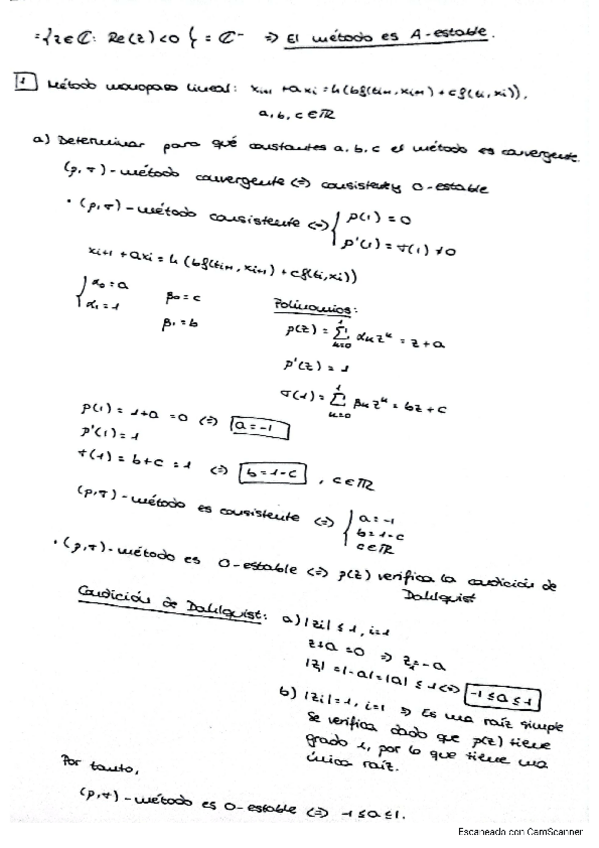 = {z∈ℂ: Re(z)<0} = ℂ⁻ ⇒ El método es A-estable.
1 Método monopaso lineal: xᵢ₊₁ + axᵢ = h(bf(tᵢ₊₁, xᵢ₊₁) + cf(tᵢ, xᵢ)),
a, b, c ∈ ℝ
a) Determinar para qué constantes a, b, c el método es convergente.
(ρ, σ) - método convergente ⇔ consistente y 0-estable
• (ρ, σ) - método consistente ⇔ { ρ(1) = 0
ρ'(1) = σ(1) ≠ 0
xᵢ₊₁ + axᵢ = h(bf(tᵢ₊₁, xᵢ₊₁) + cf(tᵢ, xᵢ))
{ α₀ = a
α₁ = 1
β₀ = c
β₁ = b
Polinomios:
ρ(z) = Σ¹ₖ₌₀ αₖzᵏ = z + a
ρ'(z) = 1
σ(1) = Σ¹ₖ₌₀ βₖzᵏ = bz + c
ρ(1) = 1 + a = 0 ⇔ a = -1
ρ'(1) = 1
σ(1) = b + c = 1 ⇔ b = 1 - c , c ∈ ℝ
(ρ, σ) - método es consistente ⇔ { a = -1
b = 1 - c
c ∈ ℝ
• (ρ, σ) - método es 0-estable ⇔ ρ(z) verifica la condición de
Dahlquist
Condición de Dahlquist: a) |zᵢ| ≤ 1, i=1
z + a = 0 ⇒ z₁ = -a
|z₁| = |-a| = |a| ≤ 1 ⇔ -1 ≤ a ≤ 1
b) |zᵢ| = 1, i=1 ⇒ Es una raíz simple
Se verifica dado que ρ(z) tiene
grado 1, por lo que tiene una
única raíz.
Por tanto,
(ρ, σ) - método es 0-estable ⇔ -1 ≤ a ≤ 1.
Escaneado con CamScanner